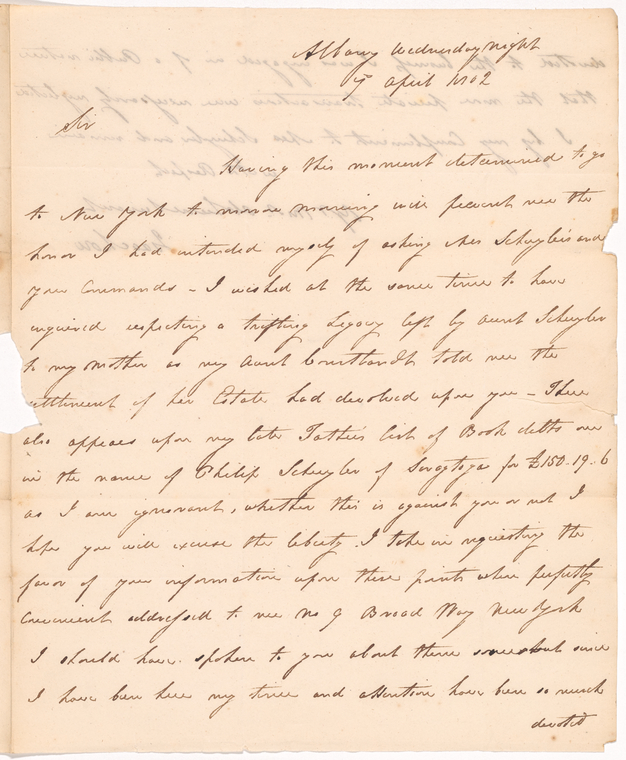 Albany Wednesday night
7 April 1802
Sir
Having this moment determined to go
to New York to morrow morning will prevent me the
honor I had intended myself of asking Mrs Schuyler's and
your Commands – I wished at the same time to have
enquired respecting a trifling Legacy left by Aunt Schuyler
to my Mother as my Aunt Courtlandt told me the
settlement of her Estate had devolved upon you – There
also appears upon my late Father's list of Book debts one
in the name of Philip Schuyler of Saratoga for £150..19..6
as I am ignorant, whether this is against you or not I
hope you will excuse the liberty I take in requesting the
favor of your information upon these points when perfectly
Convenient addressed to me No 9 Broad Way New York
I should have spoken to you about them but since
I have been here my time and attention have been so much
devoted